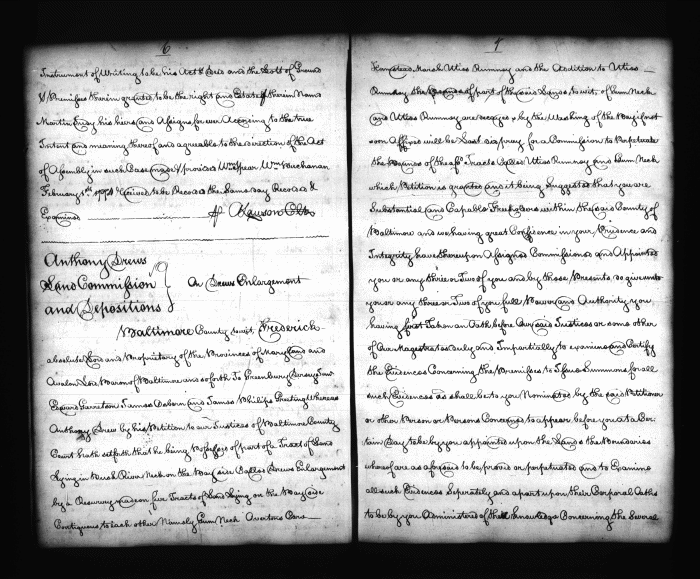 6
Instrument of Writing to be his Act & Deed and the Lott of Ground
& Premisses therein granted to be the right and Estate of therein Named
Martin Judy his heirs and Assigns for ever According to the true
Intent and meaning thereof and agreeable to the direction of the Act
of Assembly in such Case made & provided Wm Spear Wm Buchanan
February 5th 1774 Received to be Recorded the Same day Recorded &
Examined
Anthony Drews
Land Commission
and Depositions
On Drews Enlargement
Baltimore County to wit, Frederick
absolute Lord and Proprietary of the Provinces of Maryland and
Avalon Lord Baron of Baltimore and so forth To Greenbury Dorsey Junr
Edward Garretson James Osborn and James Philips Greeting Whereas
Anthony Drew by his Petition to our Justices of Baltimore County
Court hath setforth that he being Possessed of part of a Tract of Land
Lying in Bush River Neck on the Bay side Called Drews Enlargement
by a Resurvey made on five Tracts of Land Lying on the Bay side
Contiguous to each other Namely Plum Neck Overtons Care
7
Homestead Marsh Uties Rumney and the Addition to Uties
Rumney the Bounds of part of the said Lands to wit, of Plum Neck
and Uties Rumney are decayed & by the Washing of the Bay if not
soon Affixed will be Lost did pray for a Commission to Perpetuate
the Bounds of the afd. Tracts Called Uties Rumney and Plum Neck
which Petition is granted and it being Suggested that you are
Substantial and Capable Freeholders within the said County of
Baltimore and we having great Confidence in your Prudence and
Integrity have thereupon Assigned Commissioned and Appointed
you or any three or Two of you and by those Presents do give unto
you or any three or Two of you full Power and Authority you
having first Taken an Oath before Our said Justices or some other
of Our Magestrates duly and Impartially to examine and Certify
the Evidences Concerning the Premisses to Issue Summons for all
such Evidences as shall be to you Nominated by the said Petitioner
or other Person or Persons Concerned to appear before you at a Cer-
tain Day to be by you appointed upon the Lands the Boundaries
whereof are as aforesaid to be proved or perpetuated and to Examine
all such Evidences Seperately and apart upon their Corporal Oaths
to be by you Administered of their knowledge Concerning the Several